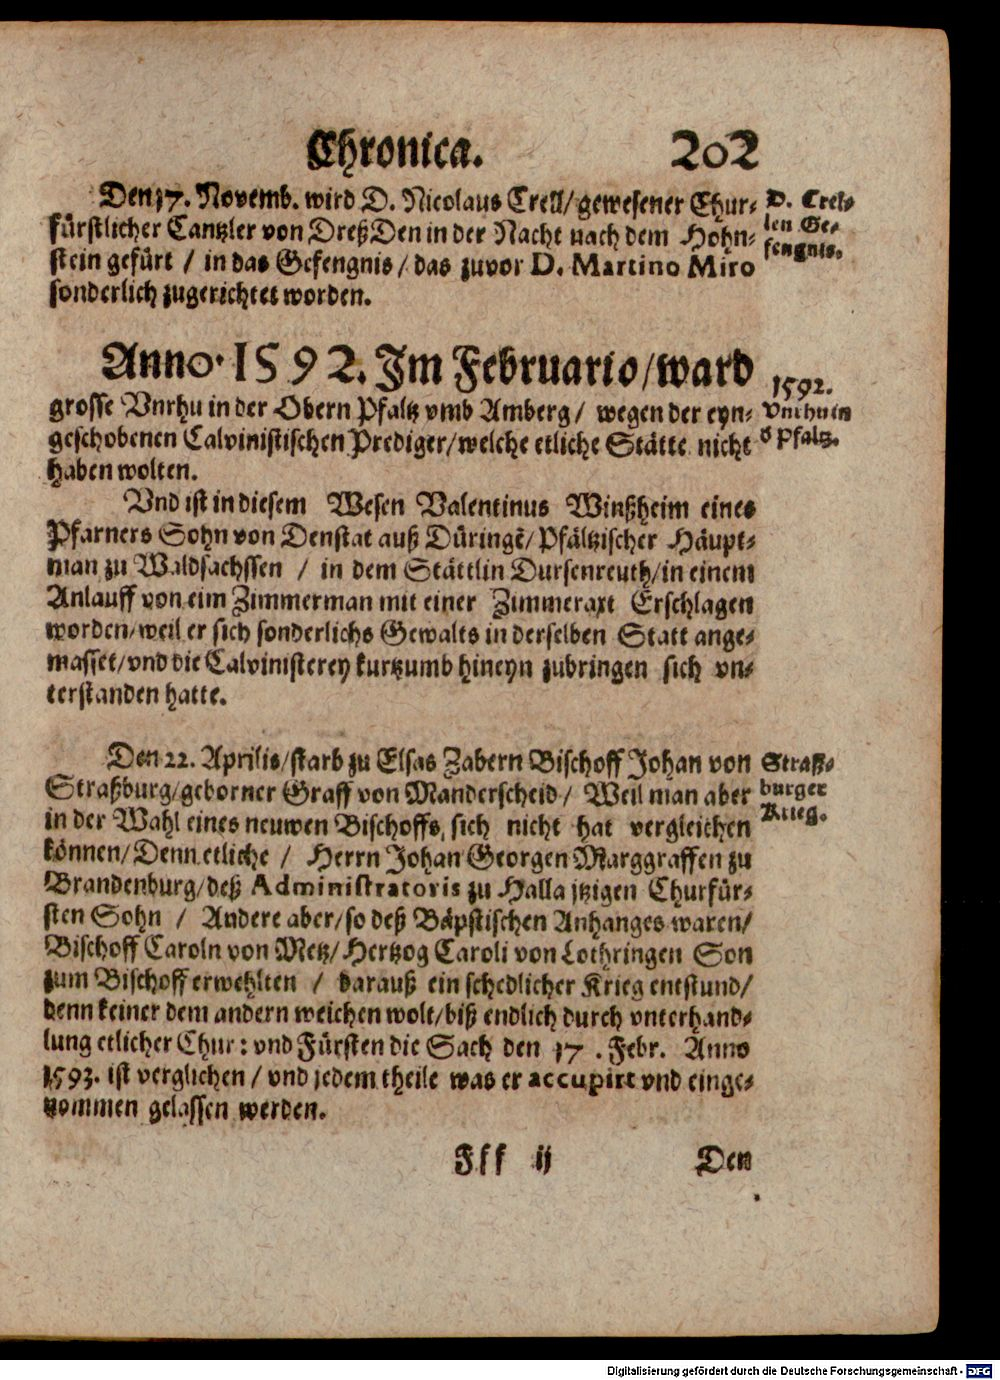 Chronica. 202
Den 17. Novemb. wird D. Nicolaus Crell/gewesener Chur-
fürstlicher Cantzler von Dreßden in der Nacht nach dem Hohn-
stein gefürt / in das Gefengnis / das zuvor D. Martino Miro
sonderlich zugerichtet worden.
D. Crel-
len Ge-
fengnis.
Anno 1592. Im Februario/ward
grosse Vnrhu in der Obern Pfaltz vmb Amberg / wegen der eyn-
geschobenen Calvinistischen Prediger/welche etliche Stätte nicht
haben wolten.
1592.
Vnrhu in
d Pfaltz.
Vnd ist in diesem Wesen Valentinus Winßheim eines
Pfarners Sohn von Denstat auß Düringẽ/Pfältzischer Häupt-
man zu Waldsachssen / in dem Stättlin Dursenreuth/in einem
Anlauff von eim Zimmerman mit einer Zimmeraxt Erschlagen
worden/weil er sich sonderlichs Gewalts in derselben Statt ange-
masset/vnd die Calvinisterey kurtzumb hineyn zubringen sich vn-
terstanden hatte.
Den 22. Aprilis/starb zu Elsas Zabern Bischoff Johan von
Straßburg/geborner Graff von Manderscheid / Weil man aber
in der Wahl eines neuwen Bischoffs, sich nicht hat vergleichen
können/Denn etliche / Herrn Johan Georgen Marggraffen zu
Brandenburg/deß Administratoris zu Halla jtzigen Churfür-
sten Sohn / Andere aber/so deß Bäpstischen Anhanges waren/
Bischoff Caroln von Metz/Hertzog Caroli von Lothringen Son
zum Bischoff erwehlten / darauß ein schedlicher Krieg entstund/
denn keiner dem andern weichen wolt/biß endlich durch vnterhand-
lung etlicher Chur: vnd Fürsten die Sach den 17. Febr. Anno
1593. ist verglichen / vnd jedem theile was er accupirt vnd einge-
nommen gelassen werden.
Straß-
burger
Krieg.
Fff ij Den
Digitalisierung gefördert durch die Deutsche Forschungsgemeinschaft - DFG